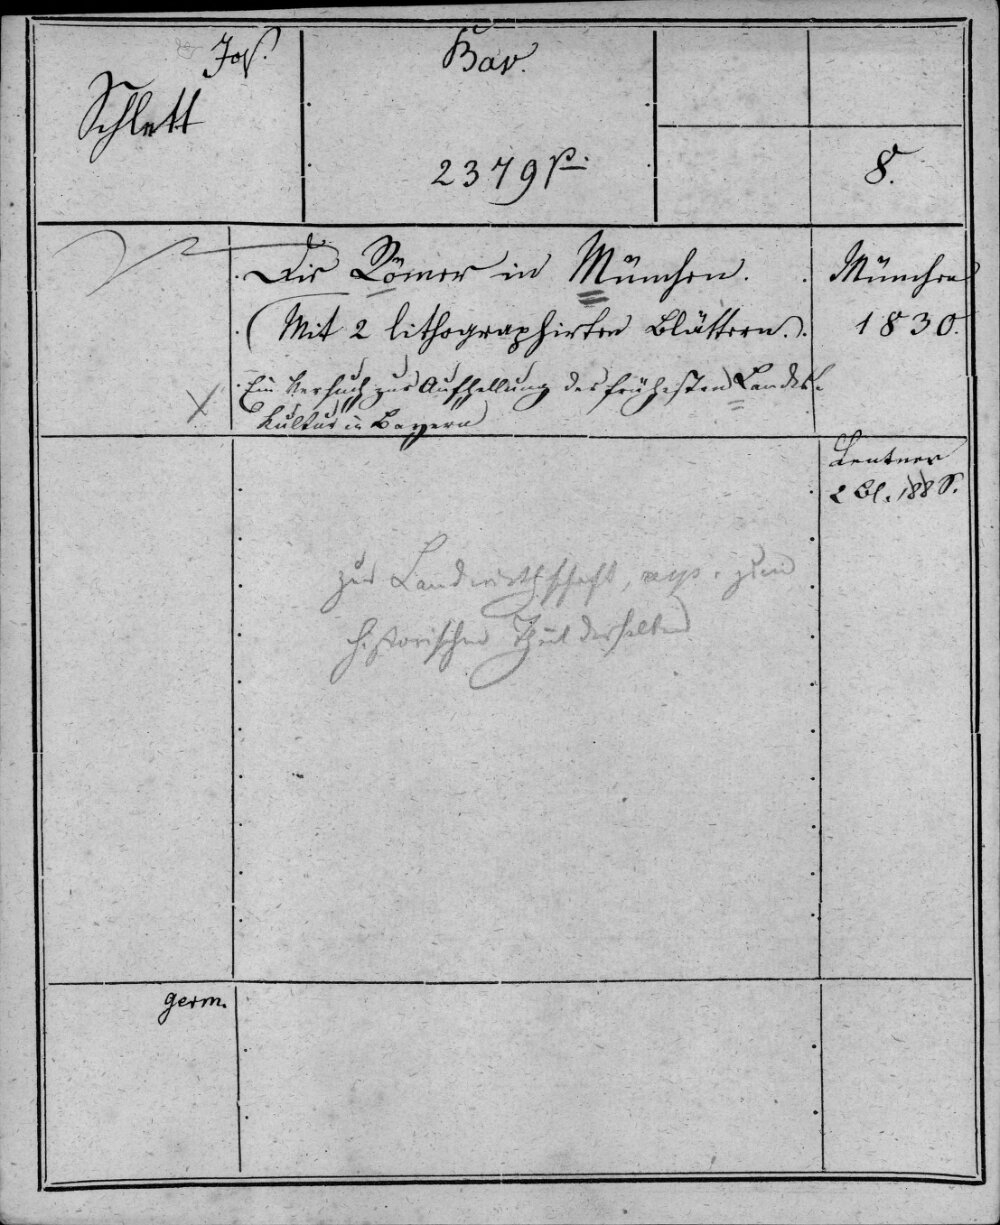 Jos.
Schlett
Bav.
2379 p.
8.
Die Römer in München.
(Mit 2 lithographirten Blättern.)
Ein Versuch zur Aufhellung der frühesten Landes-
Kultur in Bayern
München
1830.
Lentner
2 Bl. 188 S.
zur Landwirthschaft, resp. zum
historischen Theil derselben
germ.